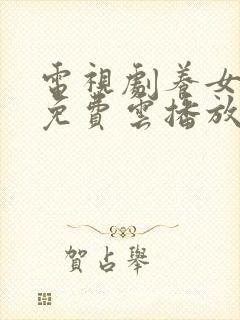 電視劇養女
免費雲播放
賀占舉